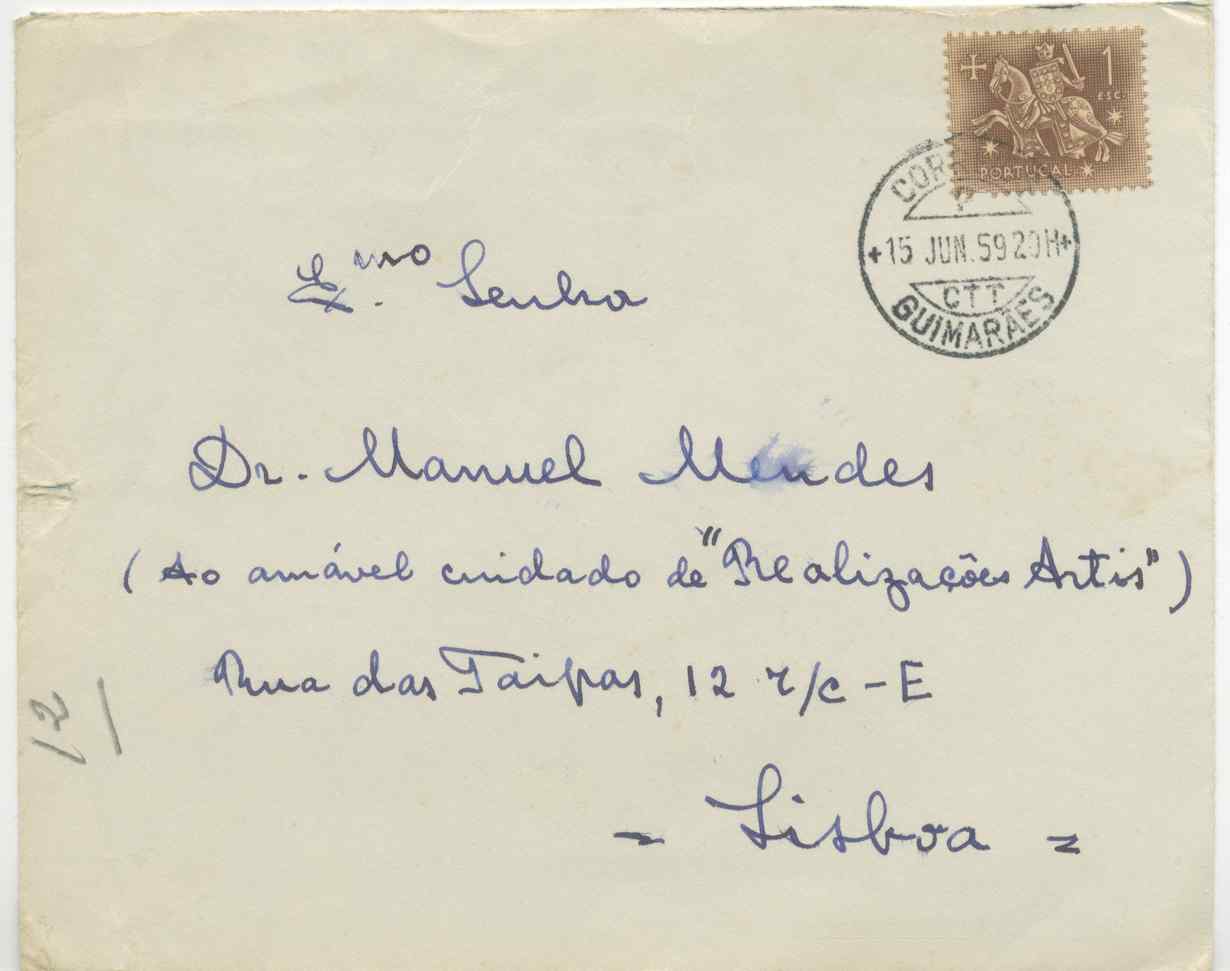 1
ESC.
PORTUGAL
COR
P
15 JUN. 59 20H
CTT
GUIMARÃES
Ex.mo Senhor
Dr. Manuel Mendes
(Ao amável cuidado de "Realizações Artis")
Rua das Taipas, 12 r/c - E
- Lisboa =
12